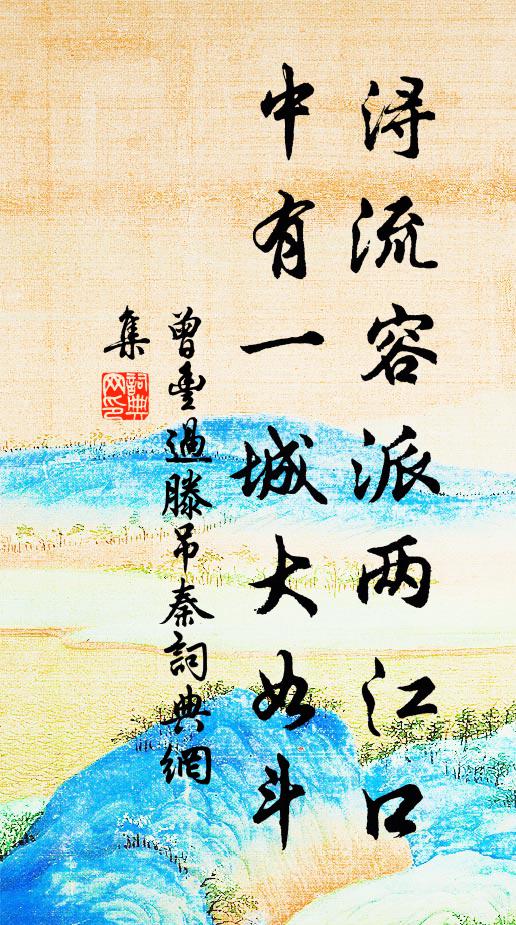 浔流容派两江口
中有一城大如斗
曾豐過滕吊秦詞典網
集
詞典网印